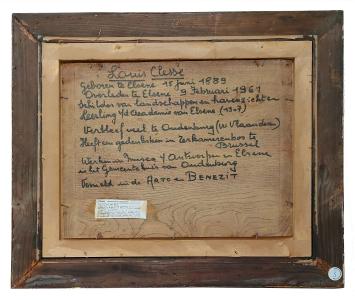 Louis Clesse
Geboren te Elsene 15 juni 1889
Overleden te Elsene 9 Februari 1961
Schilder van landschappen en havengezichten
Leerling v/d Academie van Elsene
Verbleef veel te Oudenburg (W Vlaanderen)
Heeft een gedenkteken in Terkamerenbos te
Brussel
Werken in musea v Antwerpen en Elsene
in het Gemeentehuis van Oudenburg
Vermeld in de ARTO en BENEZIT